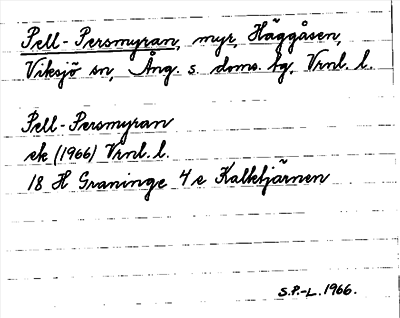 Pell-Persmyran, myr, Häggåsen,
Viksjö sn, Ång. s. doms. bg, Vrnl. l.
Pell-Persmyran
ek (1966) Vrnl. l.
18 H Graninge 4 e Kalktjärnen
S.P.-L. 1966.